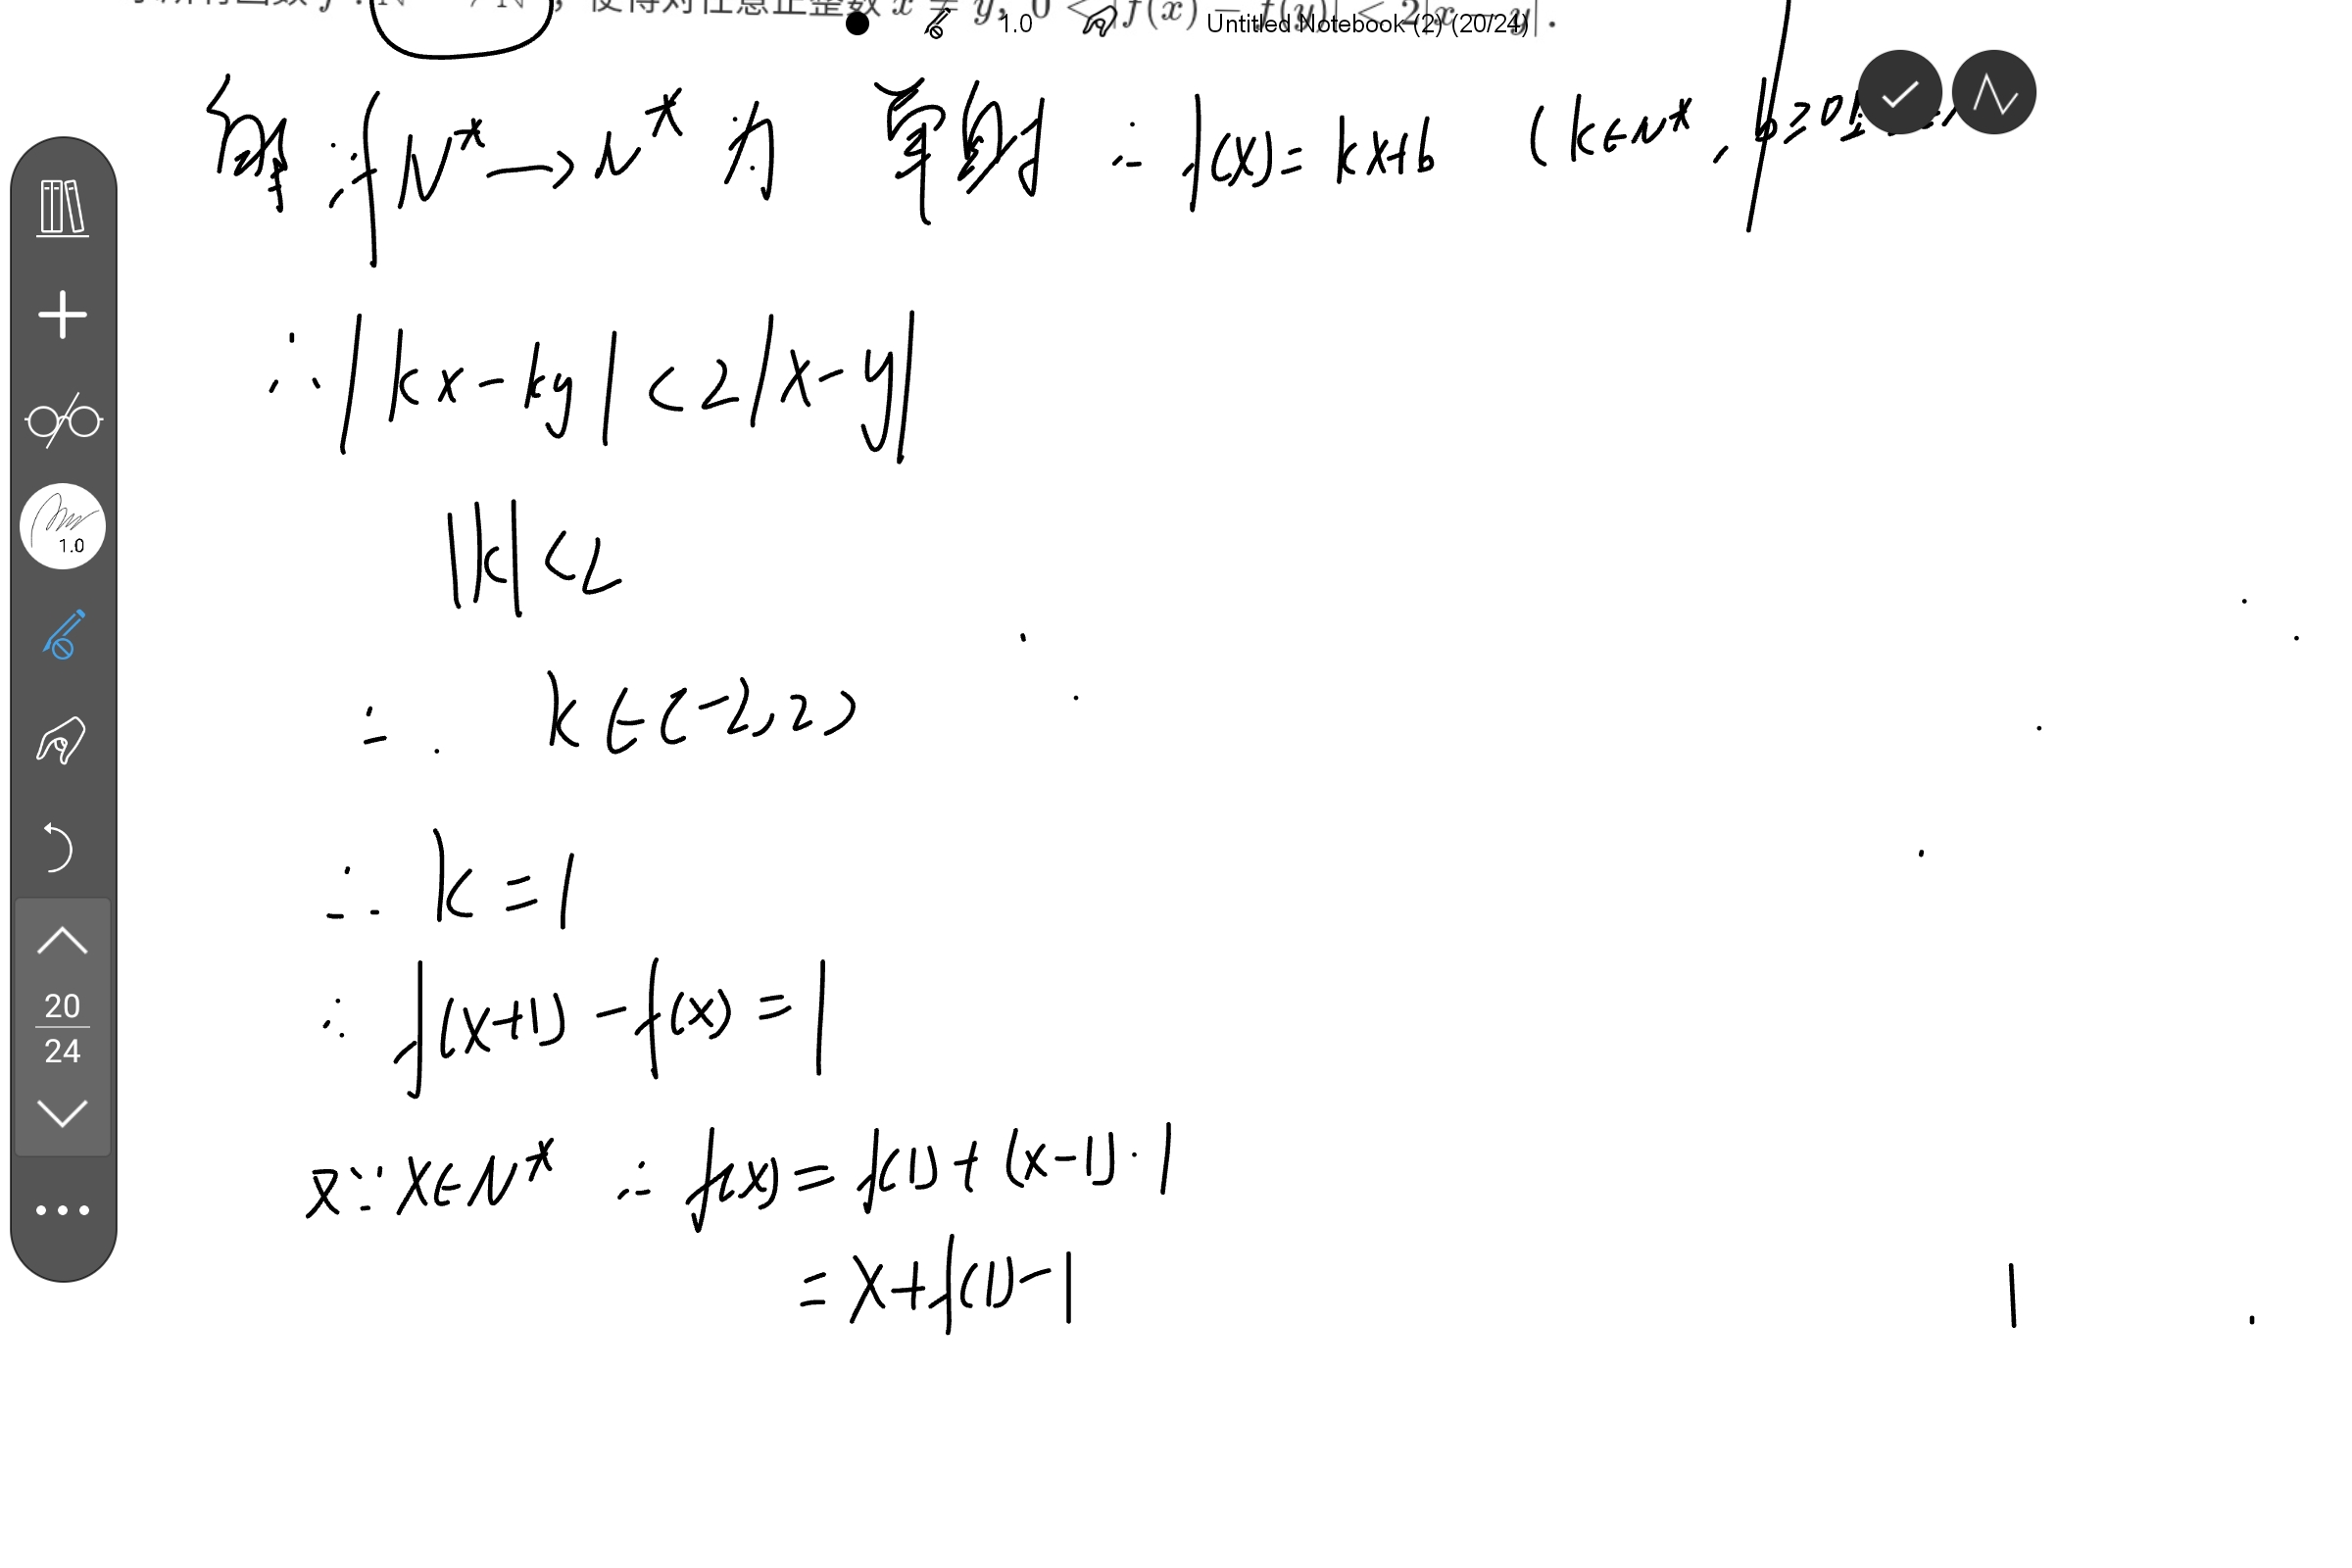 使得对任意正整数 x ≠ y, 0 < |f(x) − f(y)| < 2|x − y|.
1.0 Untitled Notebook (2) (20/24)
解 ∵ f N* → N* 为 单射 ∴ f(x) = kx+b (k∈N*, b≥0
∴ |kx-ky| < 2|x-y|
1.0
|k| < 2
∴ k∈(-2,2)
∴ k=1
∴ f(x+1) - f(x) = 1
20
24
又∵ x∈N* ∴ f(x) = f(1) + (x-1)·1
= x+f(1)-1